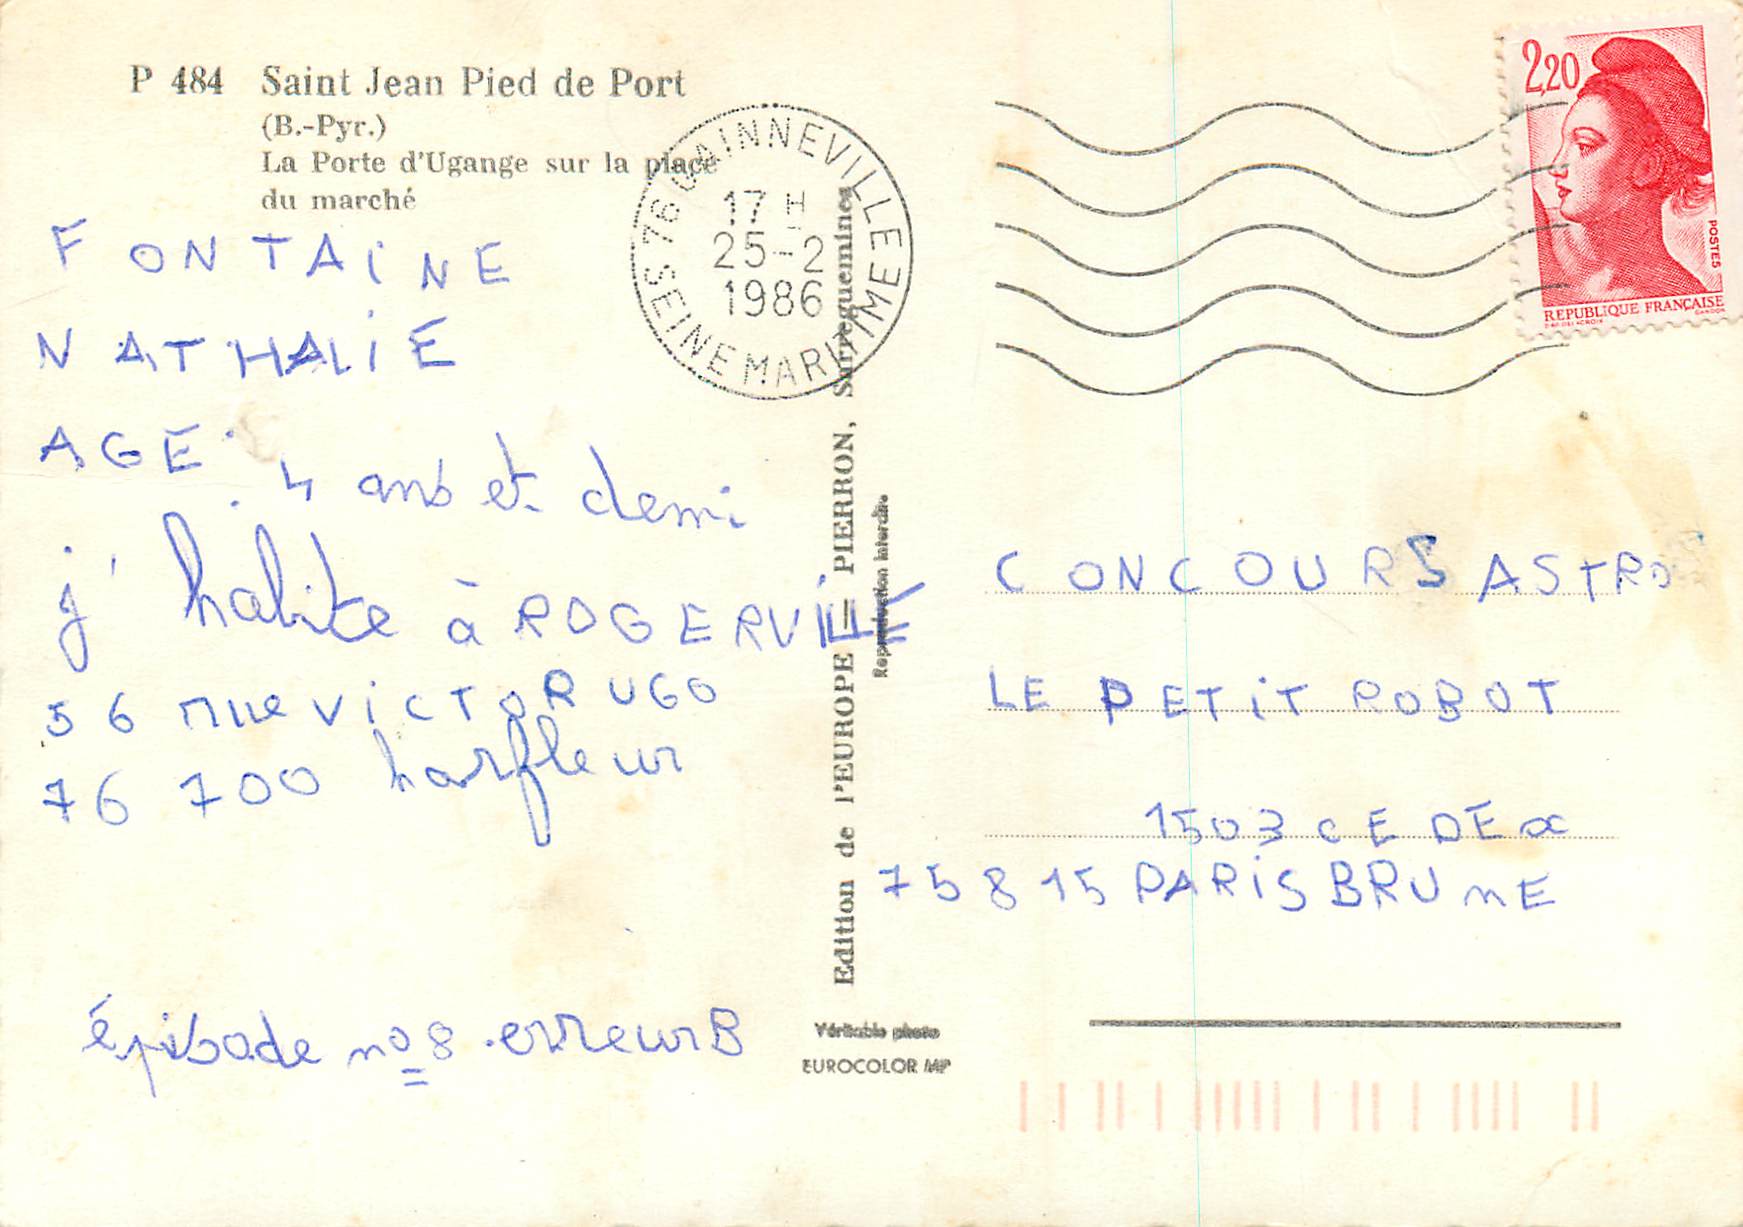 P 484 Saint Jean Pied de Port
(B.-Pyr.)
La Porte d'Ugange sur la place
du marché
FONTAINE
NATHALIE
AGE : 4 ans et demi
j'habite à ROGERVILLE
56 rue VICTOR UGO
76 700 harfleur
épisode no 8 . erreur B
76 GAINNEVILLE
17 H
25-2
1986
SEINE MARITIME
Edition de l'EUROPE = PIERRON, Sarreguemines
Reproduction interdite
Véritable photo
EUROCOLOR MP
2,20
POSTES
REPUBLIQUE FRANÇAISE
CONCOURS ASTRO
LE PETIT ROBOT
1503 CEDEx
75815 PARIS BRUnE